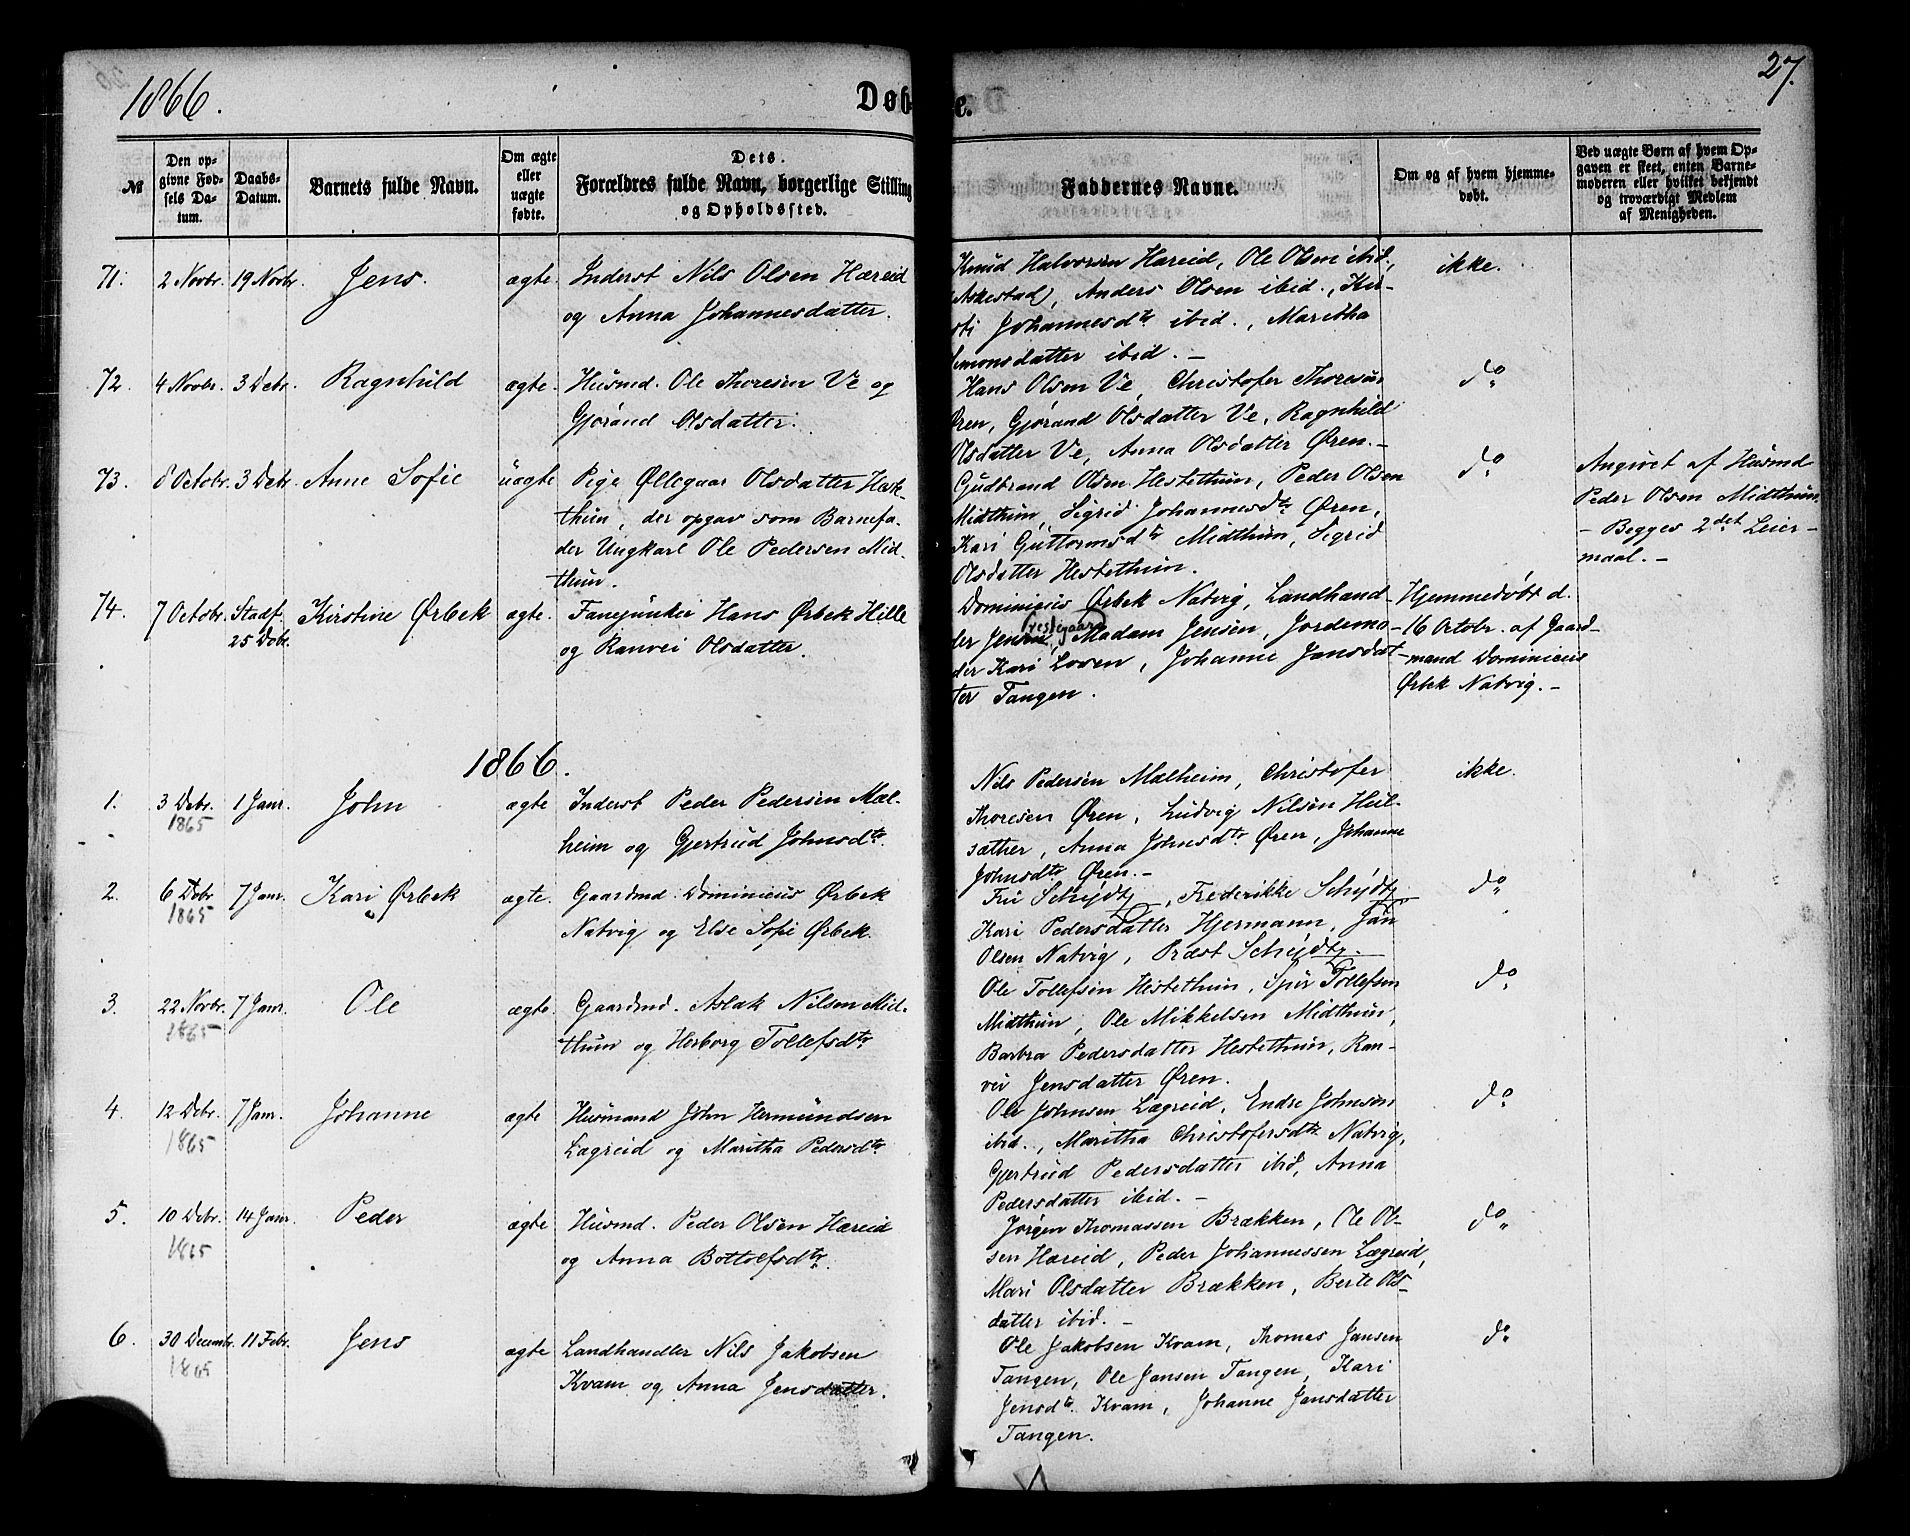 1866.
Døbte.
27.
№
Den opgivne Fødsels Datum.
Daabs-Datum.
Barnets fulde Navn.
Om ægte eller uægte fødte.
Dets Forældres fulde Navn, borgerlige Stilling og Opholdssted.
Faddernes Navne.
Om og af hvem hjemmedøbt.
Ved uægte Børn af hvem Opgaven er skeet, enten Barnemoderen eller hvilket bekjendt og troværdigt Medlem af Menigheden.
71. 2 Novbr. 19 Novbr. Jens. ægte. Inderst Nils Olsen Hæreid
og Anna Johannesdatter.
Knud Halvorsen Hæreid, Ole Olsen ibid.,
Askestad, Anders Olsen ibid., Kir-
sti Johannesdtr ibid., Maritha
Simonsdatter ibid. –
ikke.
72. 4 Novbr. 3 Debr. Ragnhild ægte. Husmd. Ole Thoresen Ve og
Gjørand Olsdatter.
Hans Olsen Ve, Christofer Thoresen
Øren, Gjørand Olsdatter Ve, Ragnhild
Olsdatter Ve, Anna Olsdatter Øren. –
do
73. 8 Octobr. 3 Debr. Anne Sofie uægte Pige Øllegaar Olsdatter Heste-
thun, der opgav som Barnefa-
der Ungkarl Ole Pedersen Mid-
thun.
Gudbrand Olsen Hestethun, Peder Olsen
Midthun, Sigrid Johannesdtr Øren,
Kari Guttormsdtr Midthun, Sigrid
Olsdatter Hestethun.
do
Angivet af Husmd
Peder Olsen Midthun.
– Begges 2det Leier-
maal. –
74. 7 Octobr. Stadf. 25 Debr. Kirstine Ørbek ægte. Fanejunker Hans Ørbek Hille
og Ranvei Olsdatter.
Dominicus Ørbek Natvig, Landhand-
ler Jensen (Vestgaard), Madam Jensen, Jordemo-
der Kari Losen, Johanne Jansdat-
ter Tangen.
Hjemmedøbt d.
16 Octobr. af Gaard-
mand Dominicus
Ørbek Natvig. –
1866.
1. 3 Debr. 1865 1 Janr. John ægte Inderst Peder Pedersen Mæl-
heim og Gjertrud Johnsdtr.
Nils Pedersen Mælheim, Christofer
Thoresen Øren, Ludvig Nilsen Heil-
sæther, Anna Johnsdtr Øren, Johanne
Johnsdtr Øren. –
ikke.
2. 6 Debr 1865 7 Janr. Kari Ørbek ægte. Gaardmd. Dominicus Ørbek
Natvig og Else Sofie Ørbek.
Fru Schydtz, Frederikke Schydtz
Kari Pedersdatter Hjermann, Jan
Olsen Natvig, Præst Schydtz.
do
3. 22 Novbr. 1865 7 Janr. Ole ægte Gaardmd. Aslak Nilsen Mid-
thun og Herborg Tollefsdtr
Ole Tollefsen Hestethun, Sjur Tollefsen
Midthun, Ole Mikkelsen Midthun,
Barbra Pedersdatter Hestethun, Ran-
vei Jensdatter Øren.
do
4. 12 Debr. 1865 7 Janr. Johanne ægte Husmand John Hermundsen
Lægreid og Maritha Pedersdtr
Ole Johnsen Lægreid, Endre Johnsen
ibid., Maritha Christofersdtr Natvig,
Gjertrud Pedersdatter ibid, Anna
Pedersdatter ibid. –
do
5. 10 Debr. 1865 14 Janr. Peder ægte Husmd. Peder Olsen Hæreid
og Anna Bottolfsdtr.
Jørgen Thomassen Brækken, Ole Ol-
sen Hæreid, Peder Johannessen Lægreid,
Mari Olsdatter Brækken, Berte Ols-
datter ibid. –
do
6. 30 Decembr. 1865 11 Febr. Jens ægte Landhandler Nils Jakobsen
Kvam og Anna Jensdatter.
Ole Jakobsen Kvam, Thomas Jansen
Tangen, Ole Jansen Tangen, Kari
Jensdtr. Kvam, Johanne Jansdatter
Tangen.
do